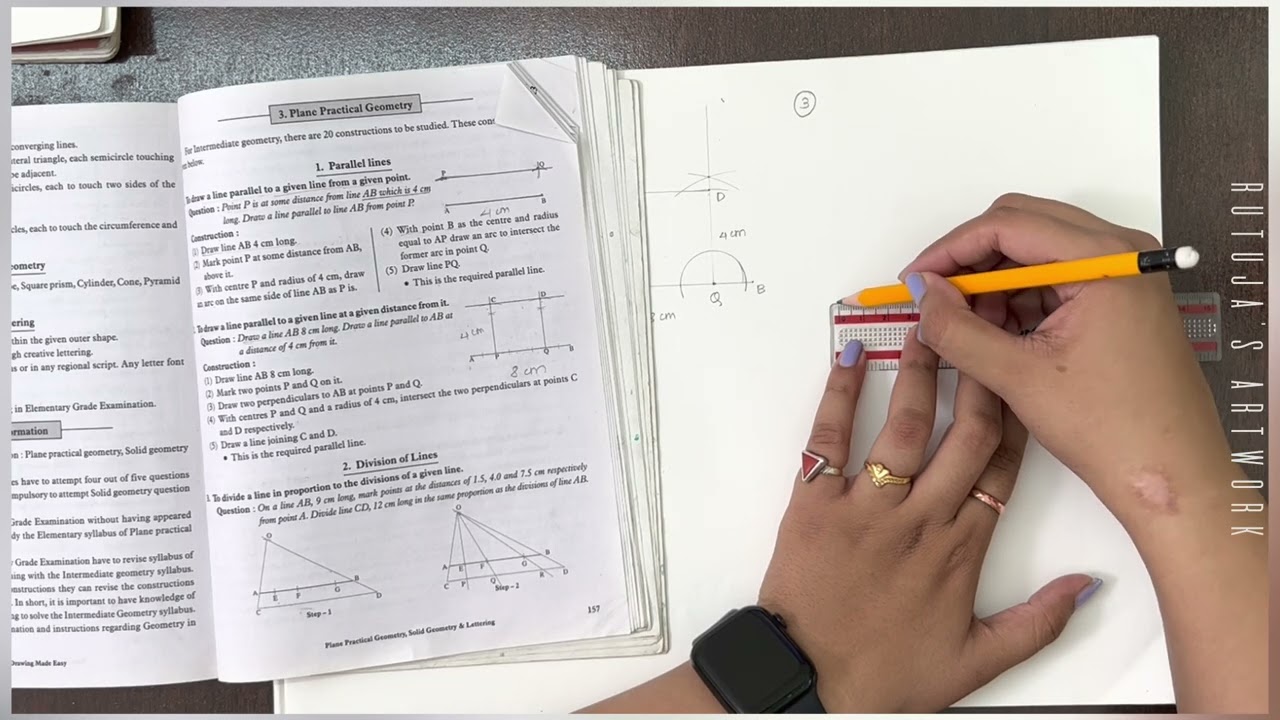 converging lines.
teral triangle, each semicircle touching
be adjacent.
circles, each to touch two sides of the
cles, each to touch the circumference and
ometry
e, Square prism, Cylinder, Cone, Pyramid
ering
thin the given outer shape.
gh creative lettering.
s or in any regional script. Any letter font
in Elementary Grade Examination.
rmation
n : Plane practical geometry, Solid geometry
es have to attempt four out of five questions
mpulsory to attempt Solid geometry question
Grade Examination without having appeared
dy the Elementary syllabus of Plane practical
Grade Examination have to revise syllabus of
ing with the Intermediate geometry syllabus.
nstructions they can revise the constructions
In short, it is important to have knowledge of
g to solve the Intermediate Geometry syllabus.
nation and instructions regarding Geometry in
Drawing Made Easy
3. Plane Practical Geometry
For Intermediate geometry, there are 20 constructions to be studied. These con
below.
1. Parallel lines
To draw a line parallel to a given line from a given point.
Question : Point P is at some distance from line AB which is 4 cm
long. Draw a line parallel to line AB from point P.
P Q
A B
4 cm
Construction :
(1) Draw line AB 4 cm long.
(2) Mark point P at some distance from AB,
above it.
(3) With centre P and radius of 4 cm, draw
an arc on the same side of line AB as P is.
(4) With point B as the centre and radius
equal to AP draw an arc to intersect the
former arc in point Q.
(5) Draw line PQ.
• This is the required parallel line.
To draw a line parallel to a given line at a given distance from it.
Question : Draw a line AB 8 cm long. Draw a line parallel to AB at
a distance of 4 cm from it.
C D
4 cm
A P Q B
8 cm
Construction :
(1) Draw line AB 8 cm long.
(2) Mark two points P and Q on it.
(3) Draw two perpendiculars to AB at points P and Q.
(4) With centres P and Q and a radius of 4 cm, intersect the two perpendiculars at points C
and D respectively.
(5) Draw a line joining C and D.
• This is the required parallel line.
2. Division of Lines
1. To divide a line in proportion to the divisions of a given line.
Question : On a line AB, 9 cm long, mark points at the distances of 1.5, 4.0 and 7.5 cm respectively
from point A. Divide line CD, 12 cm long in the same proportion as the divisions of line AB.
O
A E F G B
C D
Step – 1
O
A E F G B
C P Q R D
Step – 2
157
Plane Practical Geometry, Solid Geometry & Lettering
3
D
4 cm
Q B
8 cm
RUTUJA'S ARTWORK